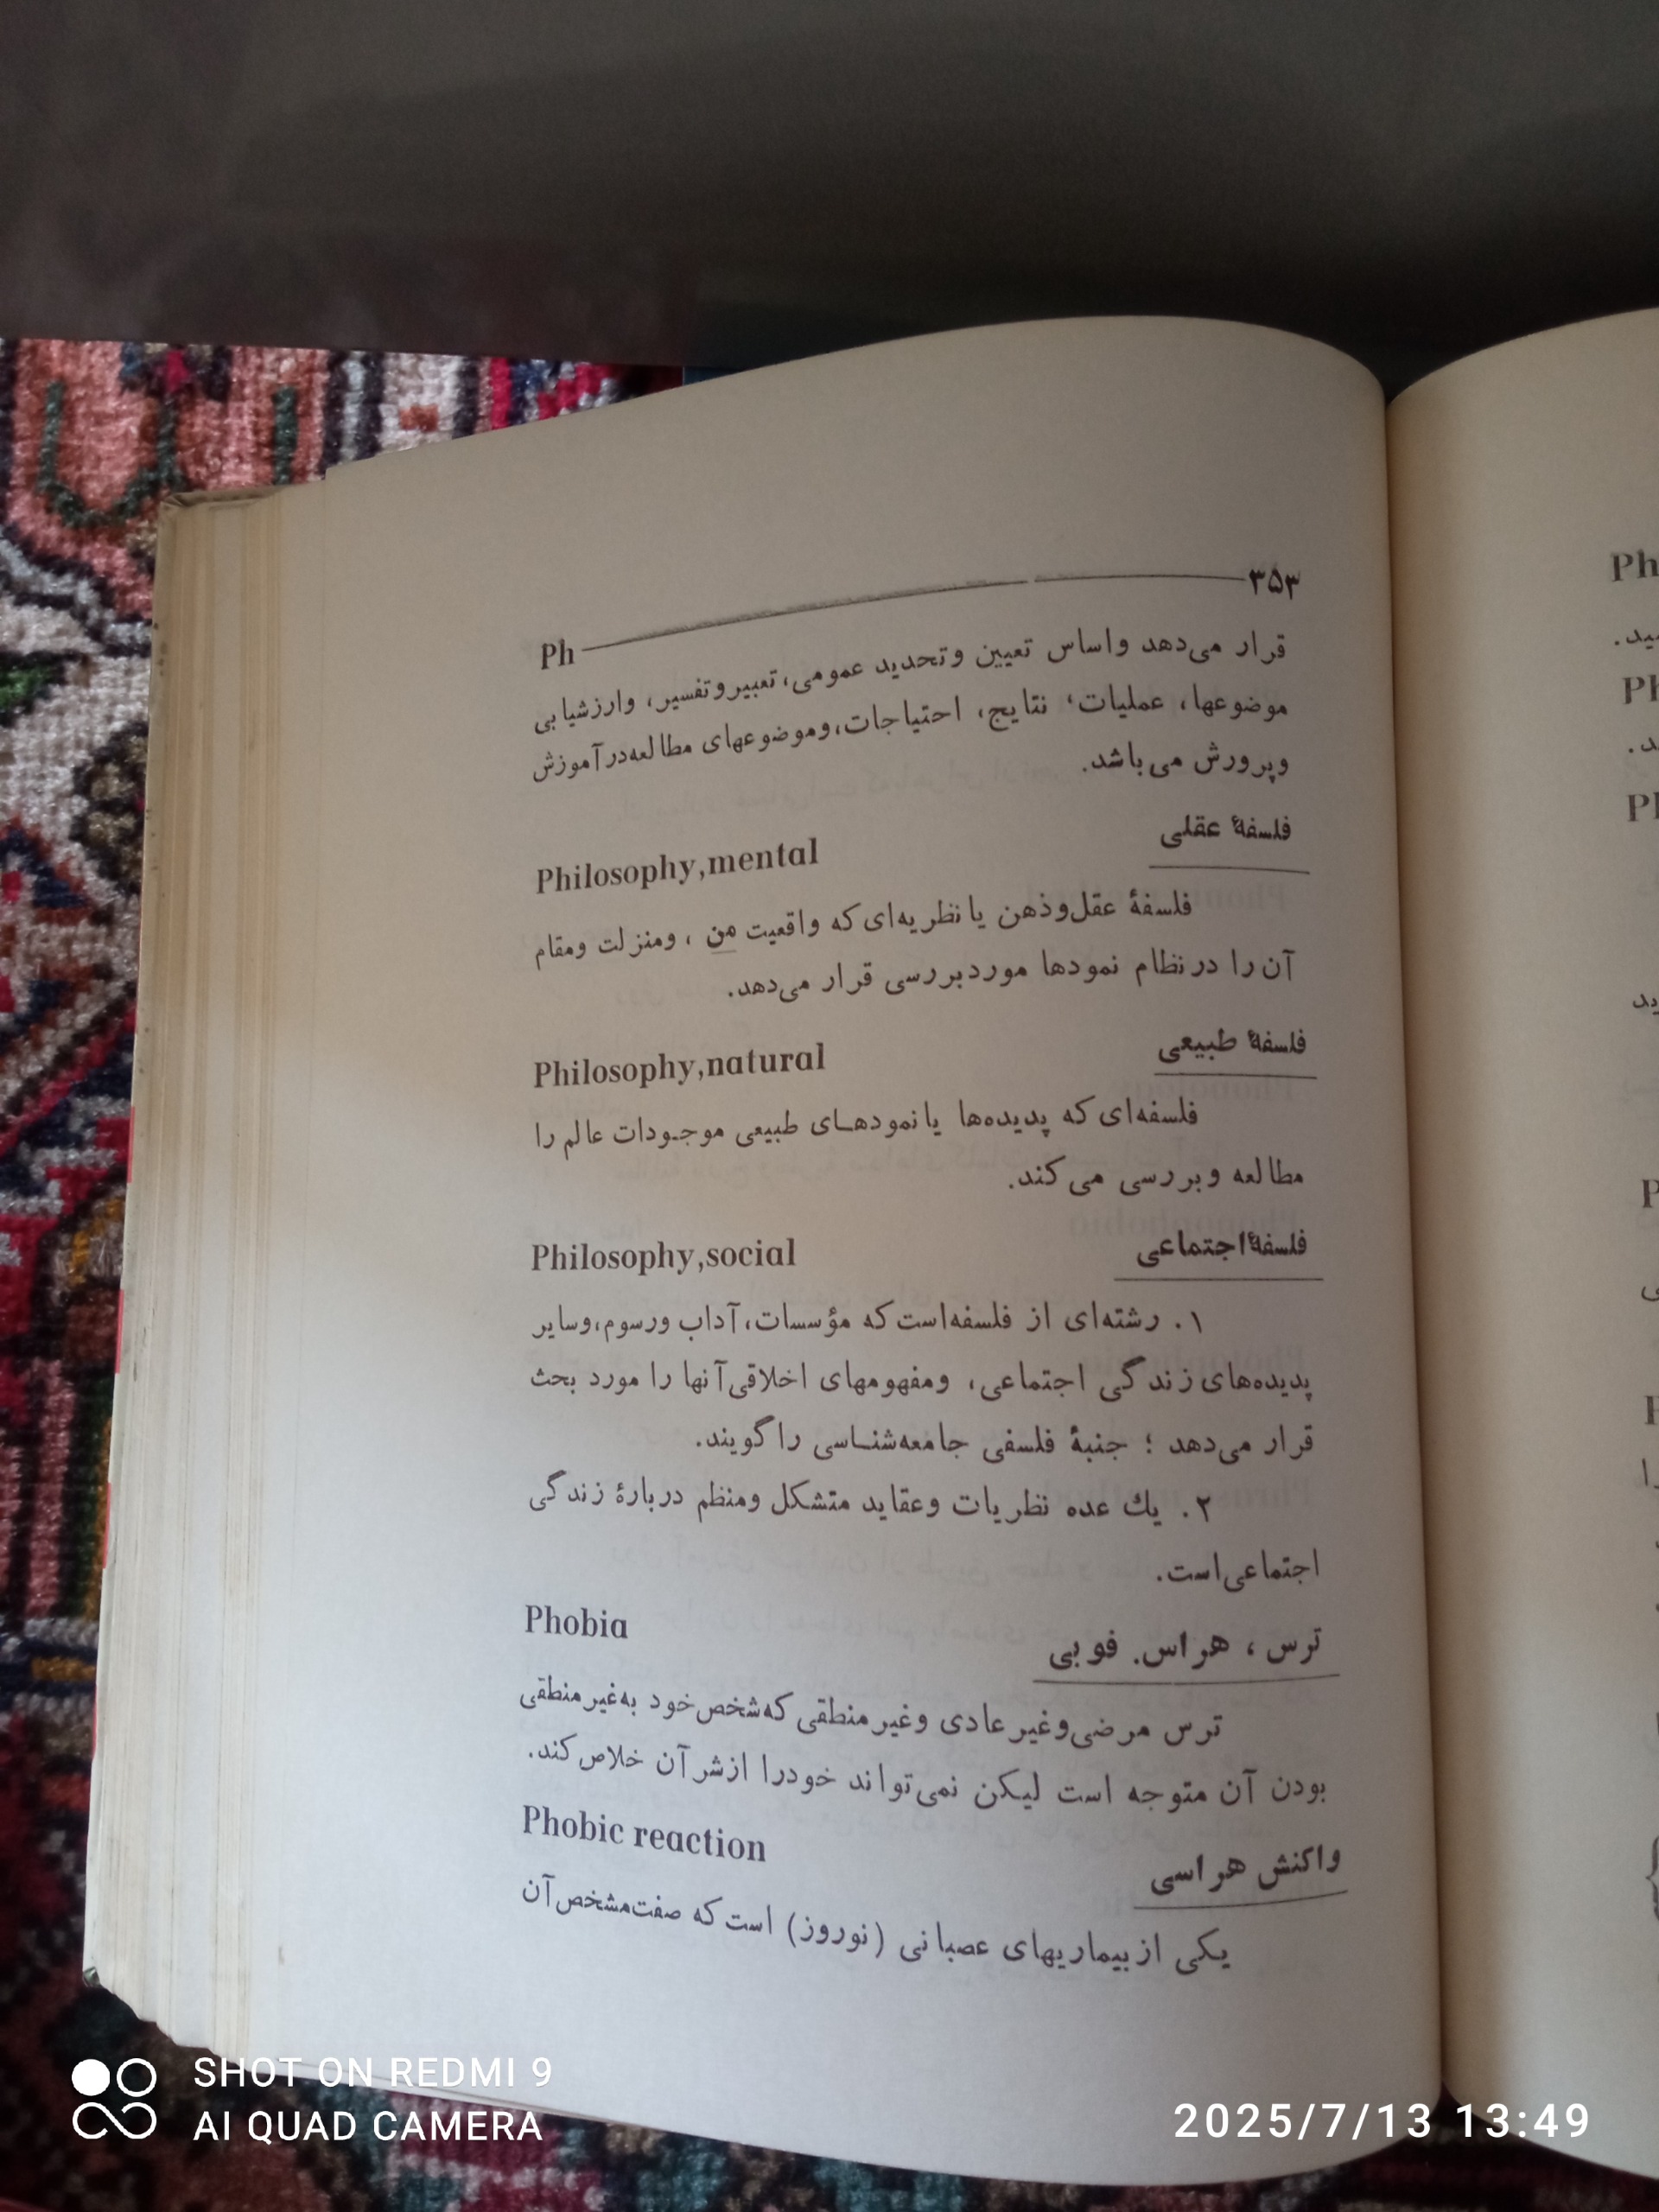 Ph ۳۵۳
قرار می‌دهد واساس تعیین وتحدید عمومی، تعبیروتفسیر، وارزشیابی
موضوعها، عملیات، نتایج، احتیاجات،وموضوعهای مطالعه‌درآموزش
وپرورش می‌باشد.
فلسفهٔ عقلی Philosophy,mental
فلسفهٔ عقل‌وذهن یا نظریه‌ای که واقعیت من ، ومنزلت ومقام
آن را درنظام نمودها موردبررسی قرار می‌دهد.
فلسفهٔ طبیعی Philosophy,natural
فلسفه‌ای که پدیده‌ها یا نمودهـای طبیعی موجـودات عالم را
مطالعه وبررسی می‌کند.
فلسفهٔ اجتماعی Philosophy,social
۱. رشته‌ای از فلسفه‌است که مؤسسات، آداب ورسوم،وسایر
پدیده‌های زندگی اجتماعی، ومفهومهای اخلاقی‌آنها را مورد بحث
قرار می‌دهد ؛ جنبهٔ فلسفی جامعه‌شنـاسی راگویند.
۲. یك عده نظریات وعقاید متشکل ومنظم دربارهٔ زندگی
اجتماعی‌است.
ترس ، هراس. فوبی Phobia
ترس مرضی‌وغیرعادی وغیرمنطقی که‌شخص‌خود به‌غیرمنطقی
بودن آن متوجه است لیکن نمی‌تواند خودرا ازشرآن خلاص‌کند.
واکنش هراسی Phobic reaction
یکی ازبیماریهای عصبانی (نوروز) است که صفت‌مشخص‌آن
Ph
.
د.
ید
SHOT ON REDMI 9
AI QUAD CAMERA
2025/7/13 13:49